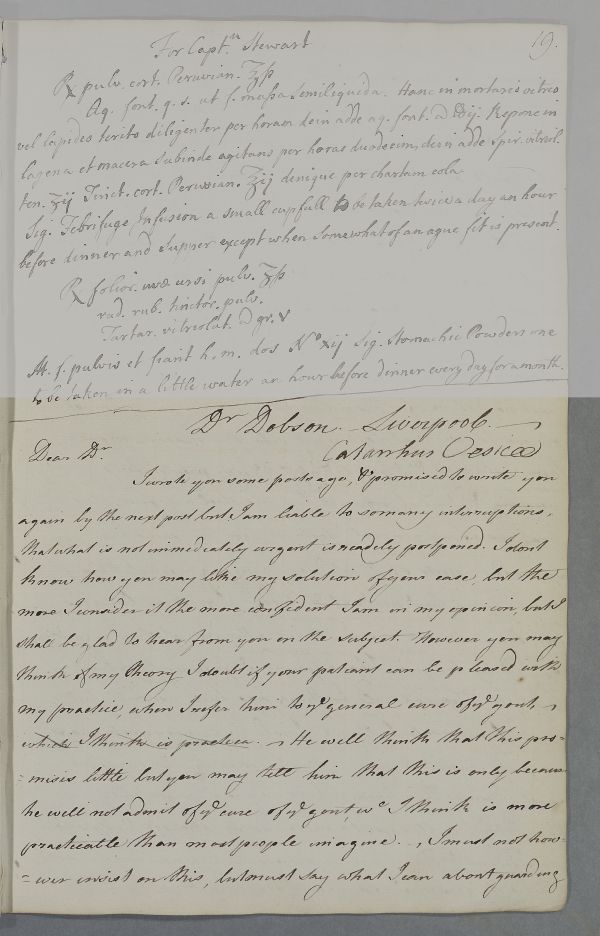 19.
For Captn. Stewart
℞ pulv. cort. Peruvian. ℥ß
Aq. font. q. s. ut f. massa semiliquida. Hanc in mortario vitreo
vel lapideo terito diligenter per horam dein adde aq. font. a ℔ij. Repone in
lagena et macera subinde agitans per horas duodecim, dein adde spir. vitriol.
ten. ʒij Tinct. cort. Peruvian. ℥ij denique per chartam cola
Sig. Febrifuge Infusion a small cupfull to be taken twice a day an hour
before dinner and supper except when somewhat of an ague fit is present.
℞ folior. uvæ ursi pulv. ʒß
rad. rub. tinctor. pulv.
Tartar. vitriolat. a gr. v
M. f. pulvis et fiant h. m. dos No. xij Sig. Stomachic Powders one
to be taken in a little water an hour before dinner every day for a month.
Dr Dobson. Liverpool.
Dear Dr. Catarrhus Vesicæ
I wrote you some posts ago, & promised to write you
again by the next post, but I am liable to so many interruptions,
that what is not immediately urgent is readily postponed. I dont
know how you may like my solution of your case, but the
more I consider it the more confident I am in my opinion, but I
shall be glad to hear from you on the subject. However you may
think of my theory I doubt if your patient can be pleased with
my practice, when I refer him to ye general cure of ye gout,
which I think is practica. He will think that this pro=
=mises little but you may tell him that this is only because
he will not admit of ye cure of ye gout, wc I think is more
practicable than most people imagine. I must not how=
=ever insist on this, but must say what I can about guarding